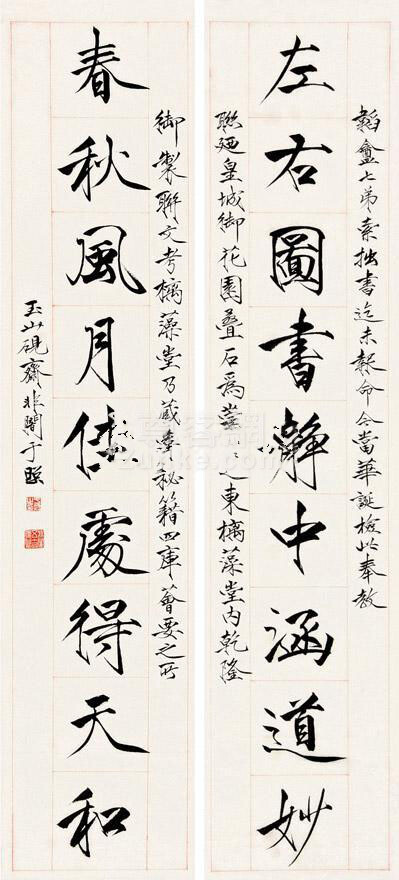 左右圖書靜中涵道妙
韜盦七弟索拙書迄未報命今當華誕檢此奉教
聯廼皇城御花園疊石為之東摛藻堂内乾隆
春秋風月佳處得天和
御製聯文考摛藻堂乃藏秘籍四庫薈要之所
玉山硯齋非闇于照